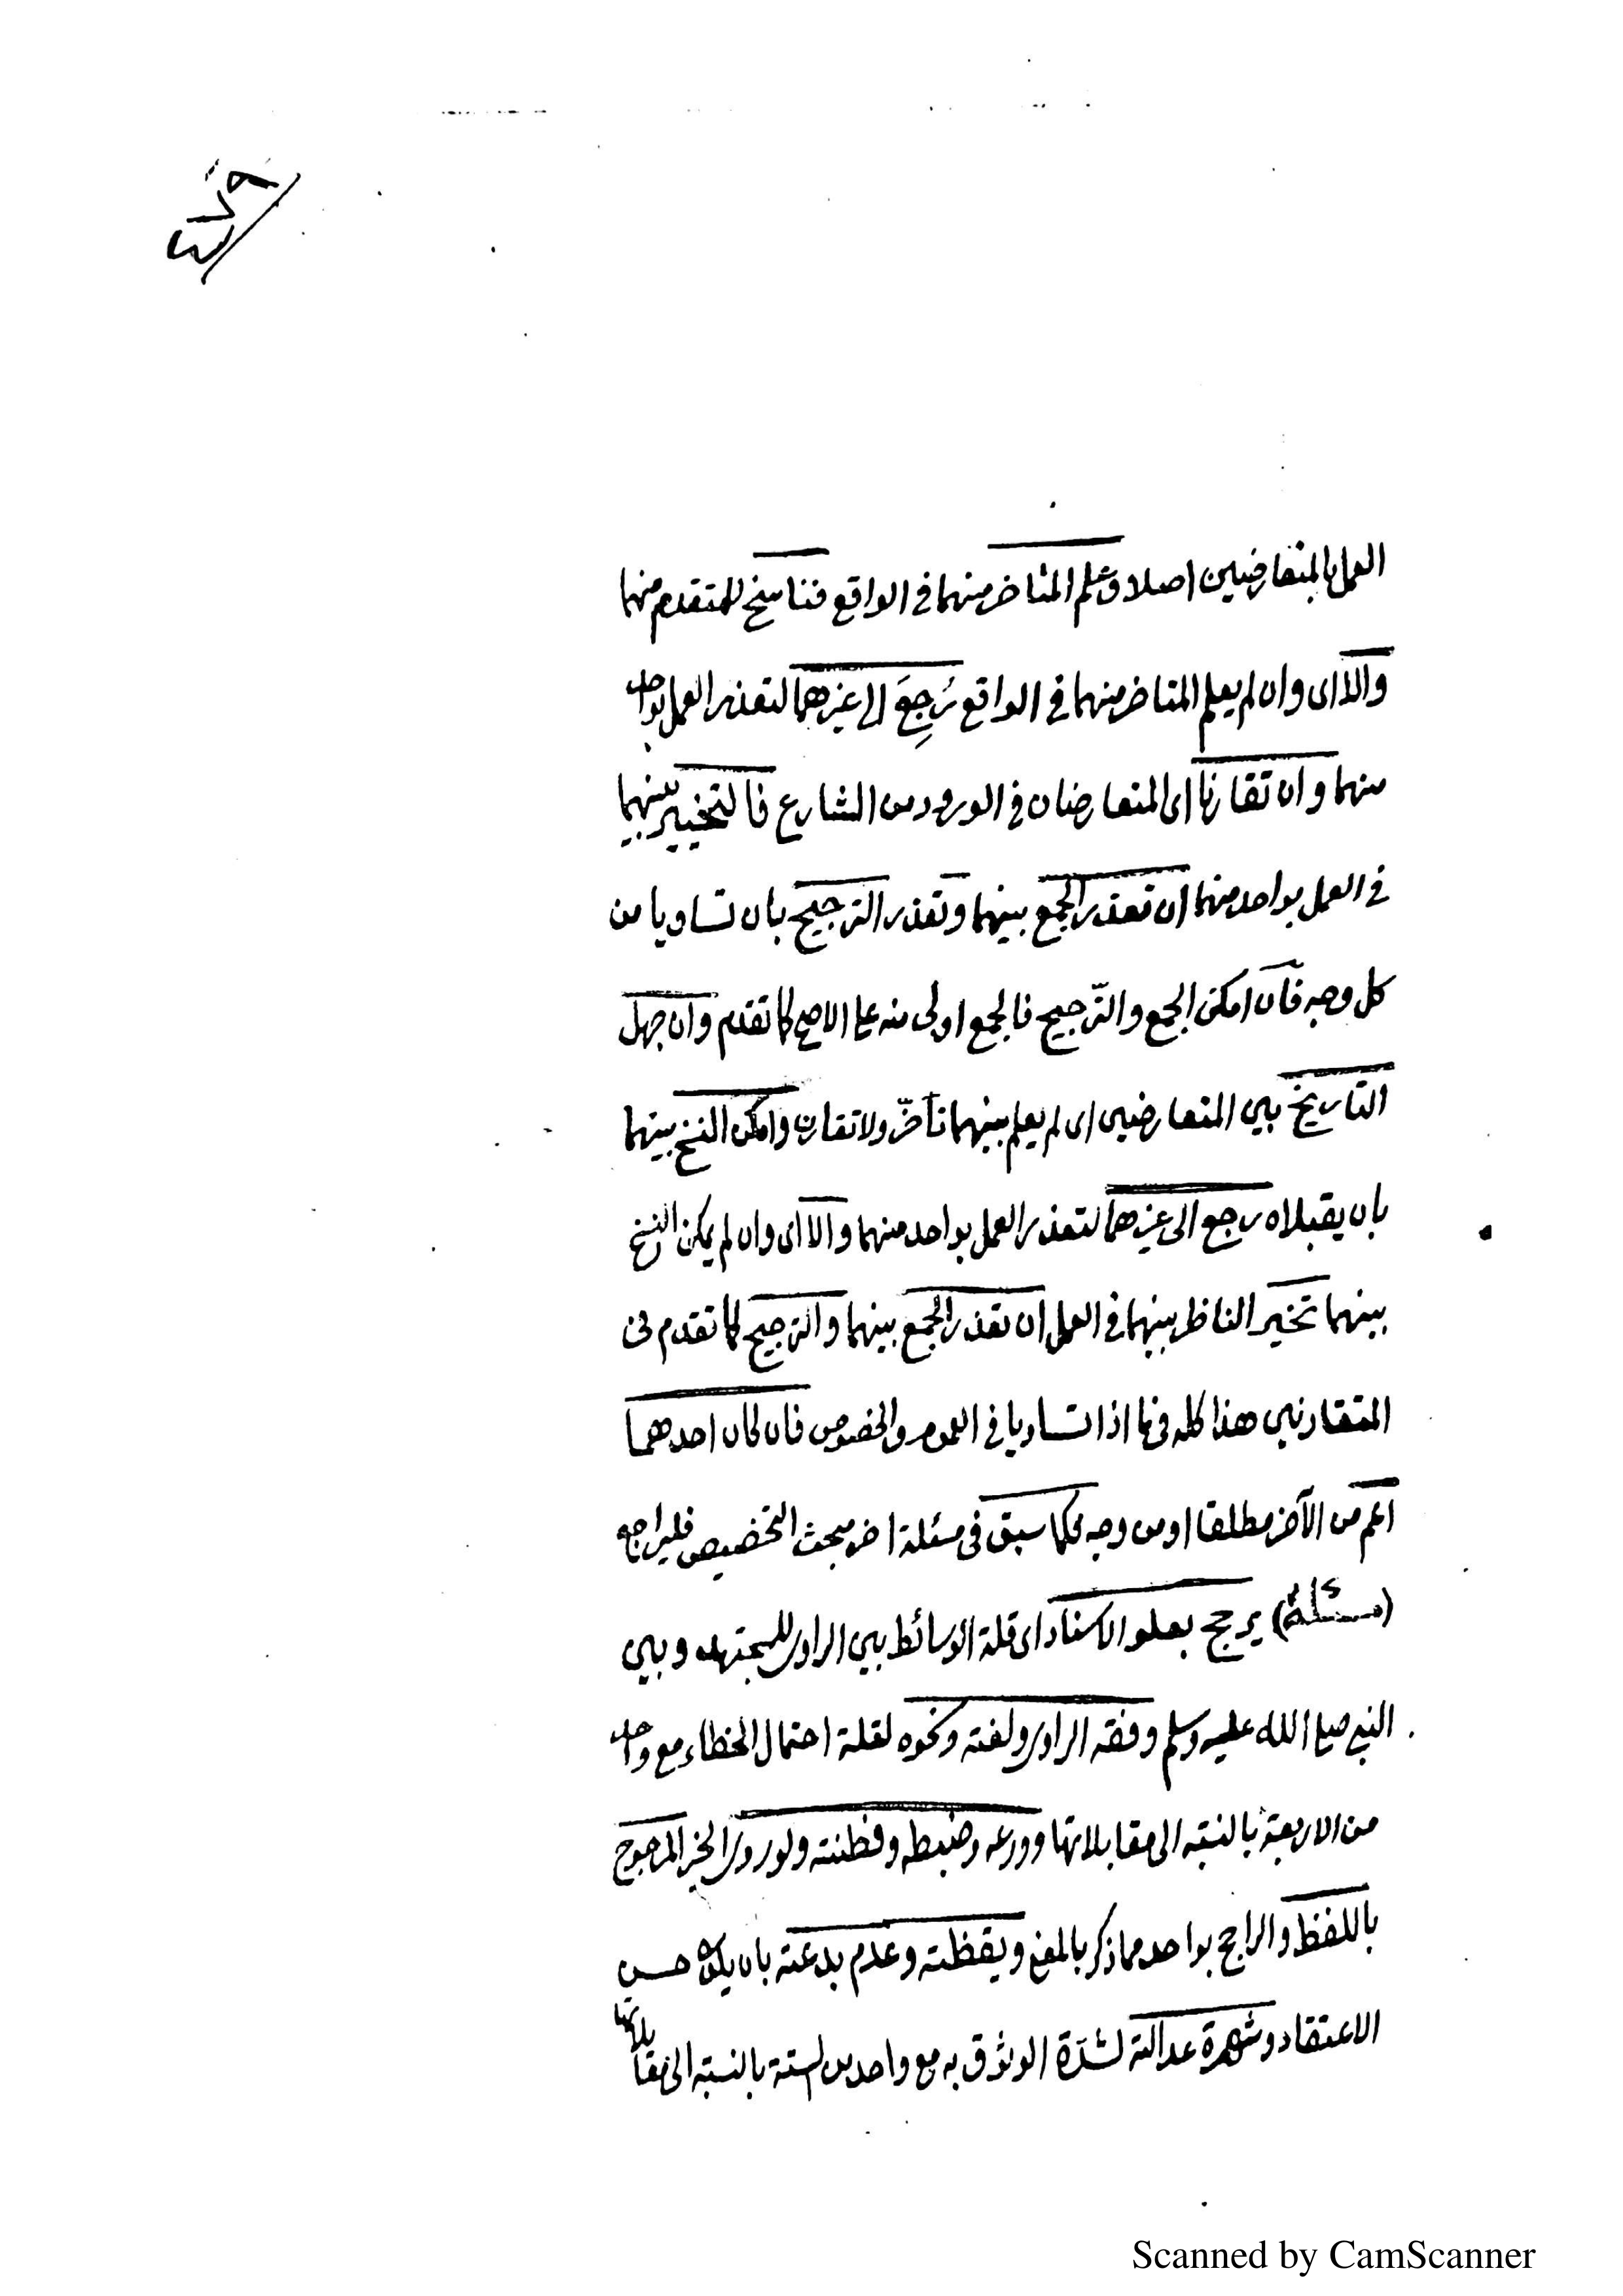 العمل بالمتعارضين اصلا وعلم المتاخر منهما فى الواقع فناسخ للمتقدم منهما
والا اى وان لم يعلم المتاخر منهما فى الواقع رُجِعَ الى غيرهما لتعذر العمل بواحد
منهما وان تقارنا اى المتعارضان فى الورود من الشارع فالتخيير بينهما
فى العمل بواحد منهما ان تعذر الجمع بينهما وتعذر الترجيح بان تساويا من
كل وجه فان امكن الجمع والترّجيح فالجمع اولى منه على الاصح كما تقدم وان جهل
التاريخ بين المتعارضين اى لم يعلم بينهما تأخّر ولا تقارن وامكن النسخ بينهما
بان يقبلاه رجع الى غيرهما لتعذر العمل بواحد منهما والا اى وان لم يمكن النسخ
بينهما تخير الناظر بينهما فى العمل ان تعذر الجمع بينهما والترجيح كما تقدم فى
المتقارنين هذا كله فيما اذا تساويا فى العموم والخصوص فان كان احدهما
اعم من الآخر مطلقا او من وجه فكما سبق فى مسئلة اخر مبحث التخصيص فليراجع
(مسئلة) يرجح بعلو الاسناد اى قلة الوسائط بين الراوى للمجتهد وبين
النبى صلى الله عليه وسلم وفقه الراوى ولغته ونحوه لقلة احتمال الخطاء مع واحد
من الاربعة بالنسبة الى مقابلاتها وورعه وضبطه وفطنته ولو روى الخبر المرجوح
باللفظ والراجح بواحد مما ذكر بالمعنى ويقظته وعدم بدعته بان يكون حسن
الاعتقاد وشهرة عدالته لشدّة الوثوق به مع واحد من الستة بالنسبة الى مقابلاتها
Scanned by CamScanner